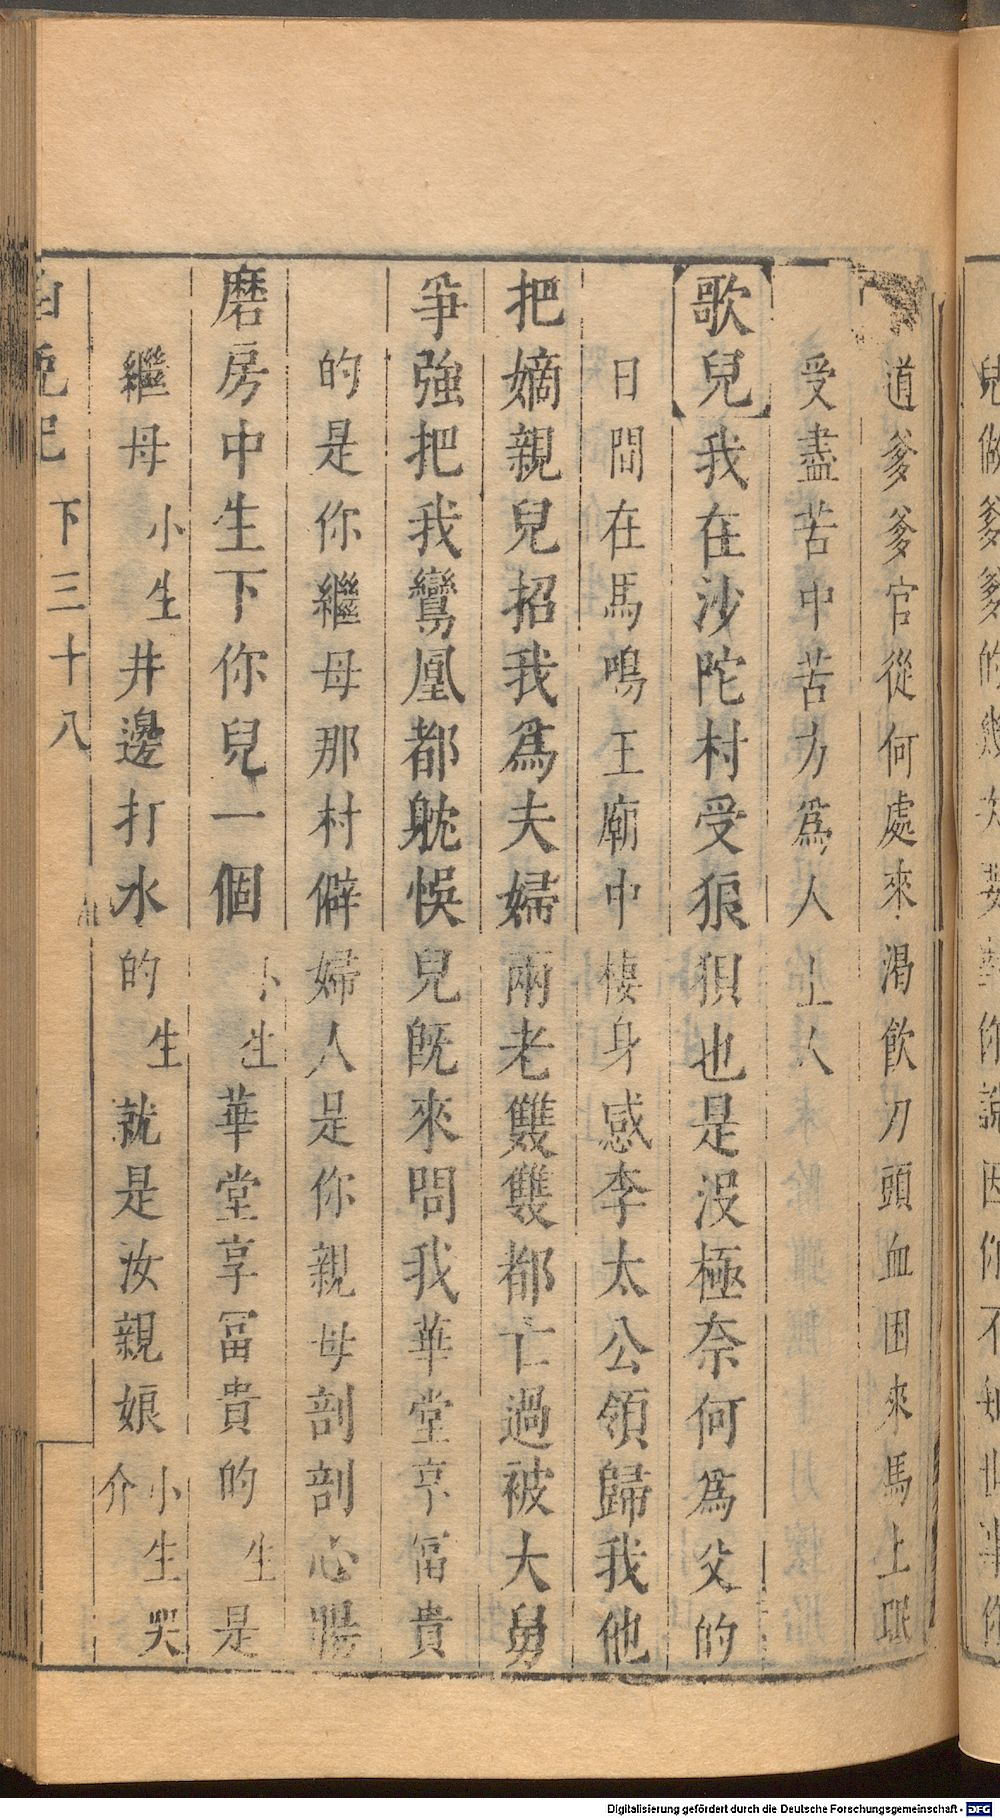 道爹爹官從何處來渴飲刀頭血困來馬上眠
受盡苦中苦方爲人上人
歌兒我在沙陀村受狼狽也是沒極奈何爲父的
日間在馬鳴王廟中棲身感李太公領歸我他
把嫡親兒招我爲夫婦兩老雙雙都亡過被大舅
爭強把我鸞凰都躭悞兒既來問我華堂享冨貴
的是你繼母那村僻婦人是你親母剖剖心腸
磨房中生下你兒一個小生華堂享冨貴的生是
繼母小生井邊打水的生就是汝親娘小生哭介
兎記 下三十八
兒做爹爹的
你說因你不知
Digitalisierung gefördert durch die Deutsche Forschungsgemeinschaft - DFG